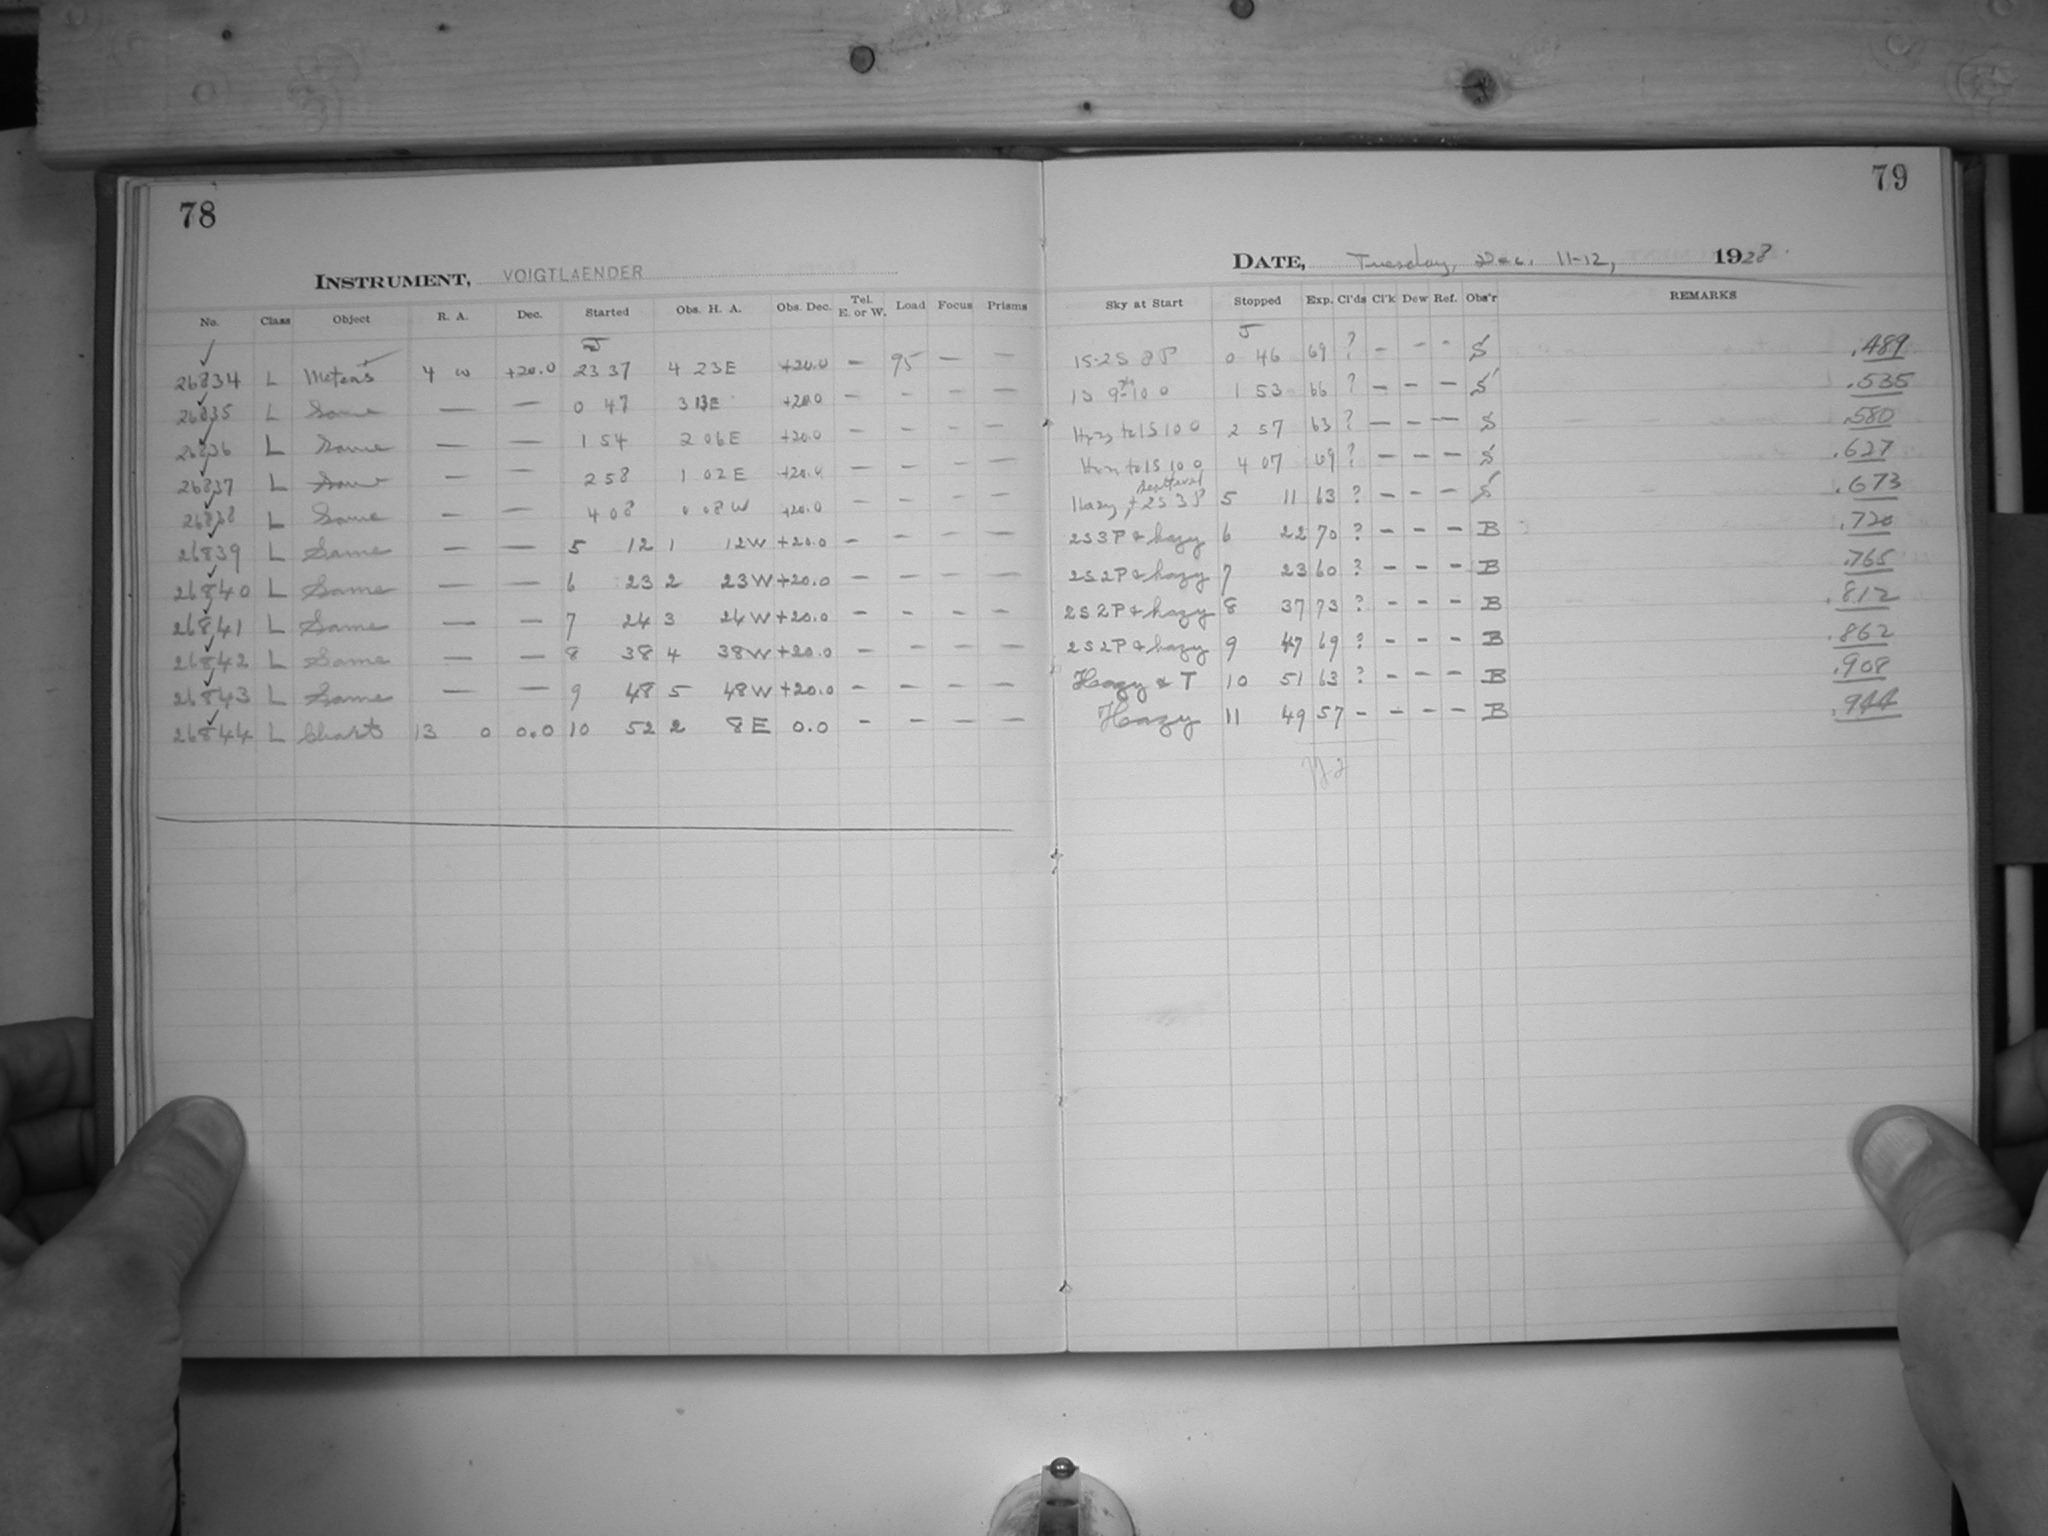 78
INSTRUMENT, VOIGTLAENDER
No. Class Object R. A. Dec. Started Obs. H. A. Obs. Dec. Tel. E. or W. Load Focus Prisms
26834 L Meteors 4 W +20.0 23 37 4 23E +20.0 – 95 – –
26835 L Same — — 0 47 3 13E +20.0 – – – –
26836 L Same — — 1 54 2 06E +20.0 – – – –
26837 L Same — — 2 58 1 02E +20.0 – – – –
26838 L Same — — 4 08 0 08W +20.0 – – – –
26839 L Same — — 5 12 1 12W +20.0 – – – –
26840 L Same — — 6 23 2 23W +20.0 – – – –
26841 L Same — — 7 24 3 24W +20.0 – – – –
26842 L Same — — 8 38 4 38W +20.0 – – – –
26843 L Same — — 9 48 5 48W +20.0 – – – –
26844 L Charts 13 0 0.0 10 52 2 8E 0.0 – – – –
79
DATE, Tuesday, Dec. 11-12, 1928
Sky at Start Stopped Exp. Cl'ds Cl'k Dew Ref. Obs'r REMARKS
1S-2S 8P 0 46 69 ? – – – S .489
1S 9-10 0 1 53 66 ? – – – S .535
Hazy to 1S 10 0 2 57 63 ? – – – S .580
to 1S 10 0 4 07 69 ? – – – S .627
scattered
Hazy, + 2S 3P 5 11 63 ? – – – S .673
2S 3P & hazy 6 22 70 ? – – – B .720
2S 2P & hazy 7 23 60 ? – – – B .765
2S 2P & hazy 8 37 73 ? – – – B .812
2S 2P & hazy 9 47 69 ? – – – B .862
Hazy & T 10 51 63 ? – – – B .908
Hazy 11 49 57 – – – – B .944